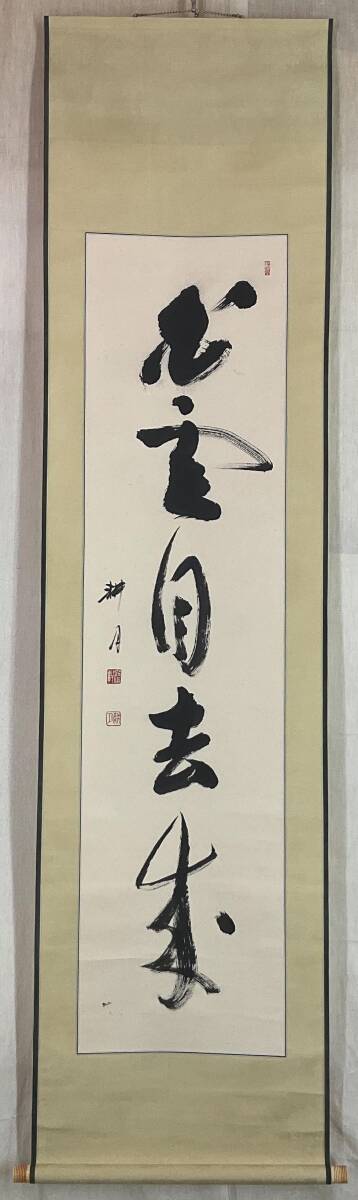 白雲自去来
耕月